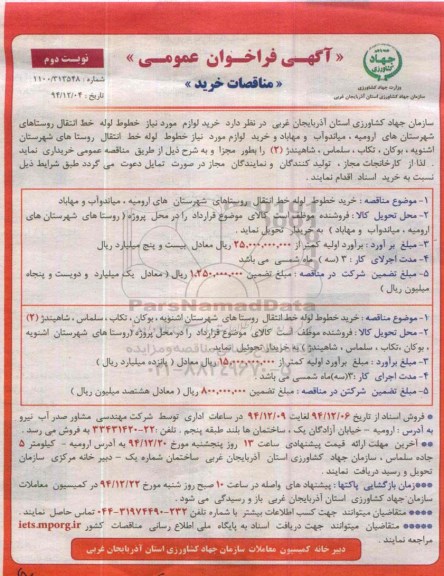 « آگهی فراخوان عمومی »
« مناقصات خرید »
نوبت دوم
شماره : ۱۱۰۰/۳۱۳۵۴۸
تاریخ : ۹۴/۱۲/۰۴
جهاد کشاورزی
وزارت جهاد کشاورزی
سازمان جهاد کشاورزی استان آذربایجان غربی
سازمان جهاد کشاورزی استان آذربایجان غربی در نظر دارد خرید لوازم مورد نیاز خطوط لوله خط انتقال روستاهای
شهرستان های ارومیه ، میاندوآب و مهاباد و خرید لوازم مورد نیاز خطوط لوله خط انتقال روستا های شهرستان
اشنویه ، بوکان ، تکاب ، سلماس ، شاهیندژ (۲) را بطور مجزا و به شرح ذیل از طریق مناقصه عمومی خریداری نماید
. لذا از کارخانجات مجاز ، تولید کنندگان و نمایندگان مجاز در صورت تمایل دعوت می گردد طبق شرایط ذیل
نسبت به خرید اسناد اقدام نمایند .
۱- موضوع مناقصه : خرید خطوط لوله خط انتقال روستاهای شهرستان های ارومیه ، میاندوآب و مهاباد
۲- محل تحویل کالا : فروشنده موظف است کالای موضوع قرارداد را در محل پروژه ( روستا های شهرستان های
ارومیه ، میاندوآب و مهاباد ) به خریدار تحویل نماید .
۳- مبلغ بر آورد : برآورد اولیه کمتر از ۲۵,۰۰۰,۰۰۰,۰۰۰ ریال معادل بیست و پنج میلیارد ریال
۴- مدت اجرای کار : ۳ (سه ) ماه شمسی می باشد
۵- مبلغ تضمین شرکت در مناقصه : مبلغ تضمین ۱,۲۵۰,۰۰۰,۰۰۰ ریال ( معادل یک میلیارد و دویست و پنجاه
میلیون ریال )
۱- موضوع مناقصه : خرید خطوط لوله خط انتقال روستا های شهرستان اشنویه ، بوکان ، تکاب ، سلماس ، شاهیندژ (۲)
۲- محل تحویل کالا : فروشنده موظف است کالای موضوع قرارداد را در محل پروژه (روستا های شهرستان اشنویه
، بوکان ،تکاب ، سلماس ، شاهیندژ ) به خریدار تحویل نماید.
۳- مبلغ برآورد : مبلغ برآورد اولیه کمتر از ۱۵,۰۰۰,۰۰۰,۰۰۰ ریال معادل ( پانزده میلیارد ریال )
۴- مدت اجرای کار :۳(سه)ماه شمسی می باشد .
۵- مبلغ تضمین شرکتدر مناقصه : مبلغ تضمین ۸۰۰,۰۰۰,۰۰۰ ریال ( معادل هشتصد میلیون ریال )
* فروش اسناد از تاریخ ۹۴/۱۲/۰۶ لغایت ۹۴/۱۲/۰۹ در ساعات اداری توسط شرکت مهندسی مشاور صدر آب نیرو
به آدرس : ارومیه – خیابان آزادگان یک ، ساختمان ها بلند طبقه پنجم . تلفن : ۲۲-۳۳۴۳۱۴۲۰ به فروش می رسد .
** آخرین مهلت ارائه قیمت پیشنهادی ساعت ۱۳ روز پنجشنبه مورخ ۹۴/۱۲/۲۰ به آدرس ارومیه - کیلومتر ۵
جاده سلماس ، سازمان جهاد کشاورزی استان آذربایجان غربی ساختمان شماره یک - دبیر خانه مرکزی سازمان
تحویل و رسید دریافت نمایند .
***زمان بازگشایی پاکتها : پیشنهاد های واصله در ساعت ۱۰ صبح روز شنبه مورخ ۹۴/۱۲/۲۲ در کمیسیون معاملات
سازمان جهاد کشاورزی استان آذربایجان غربی باز و رسیدگی می شود .
**** متقاضیان میتوانند جهت کسب اطلاعات بیشتر با شماره تلفن ۲۳۲-۳۱۹۷۴۴۹۰-۰۴۴ تماس حاصل نمایند .
***** متقاضیان میتوانند جهت دریافت اسناد به پایگاه ملی اطلاع رسانی مناقصات کشور iets.mporg.ir
مراجعه نمایند .
دبیر خانه کمیسیون معاملات سازمان جهاد کشاورزی استان آذربایجان غربی
ParsNamadData